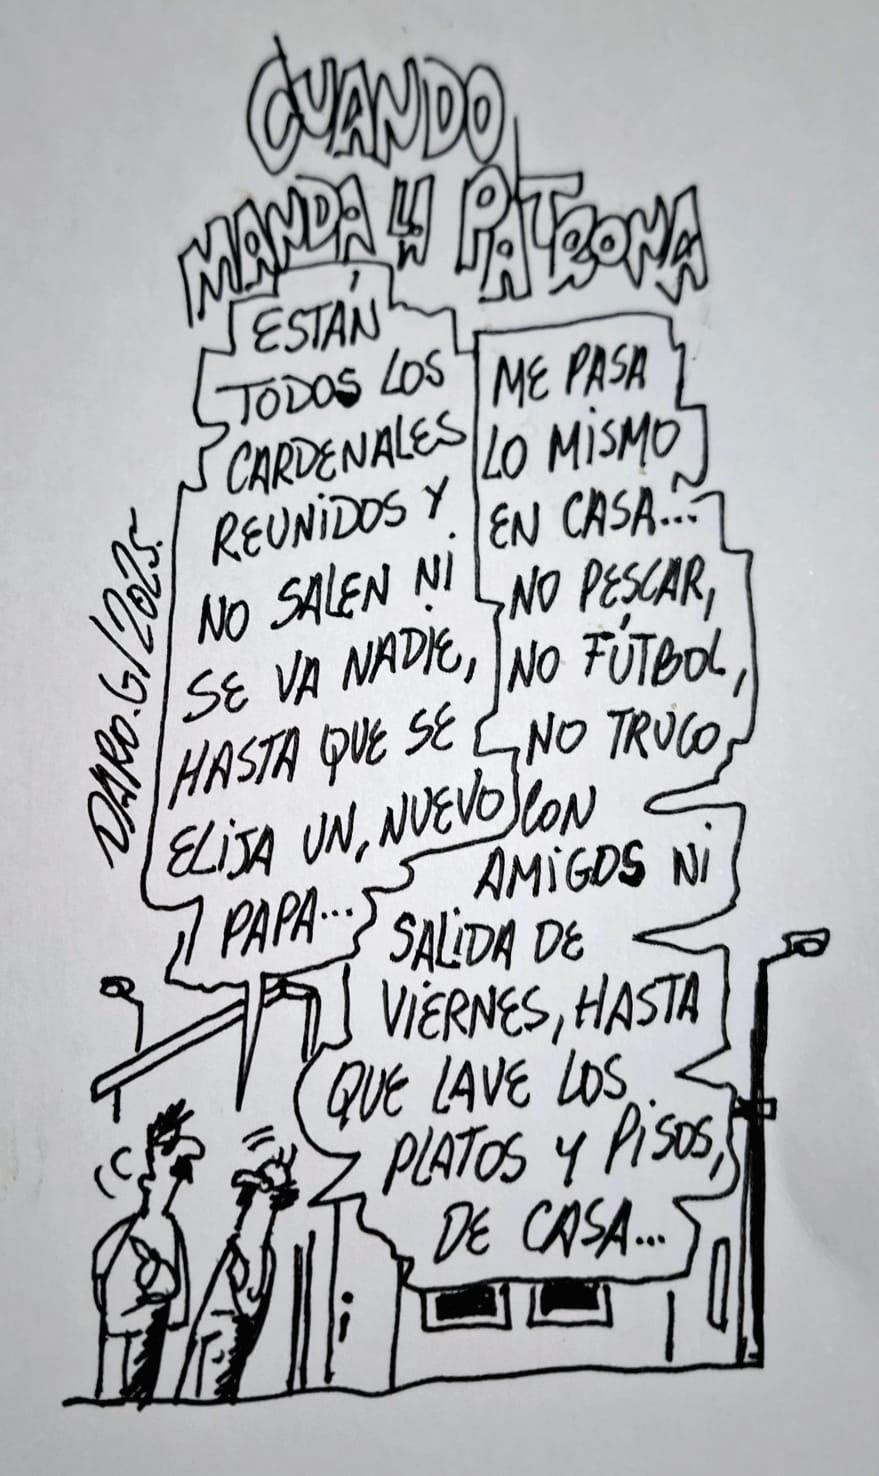 CUANDO
MANDA LA PATRONA
ESTÁN
TODOS LOS
CARDENALES
REUNIDOS Y
NO SALEN NI
SE VA NADIE,
HASTA QUE SE
ELIJA UN, NUEVO
PAPA...
ME PASA
LO MISMO
EN CASA...
NO PESCAR,
NO FÚTBOL,
NO TRUCO
CON
AMIGOS NI
SALIDA DE
VIERNES, HASTA
QUE LAVE LOS
PLATOS Y PISOS,
DE CASA...
DARO.G/2025.